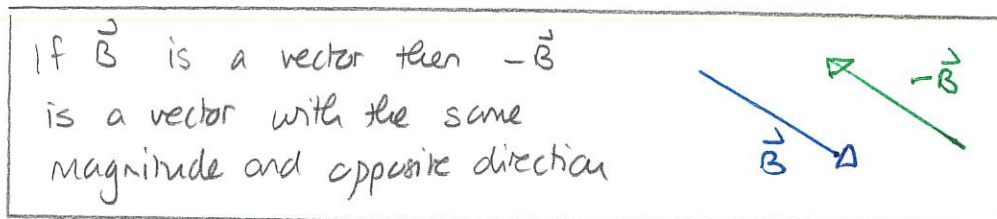 If B⃗ is a vector then -B⃗
is a vector with the same
magnitude and opposite direction
B⃗
-B⃗